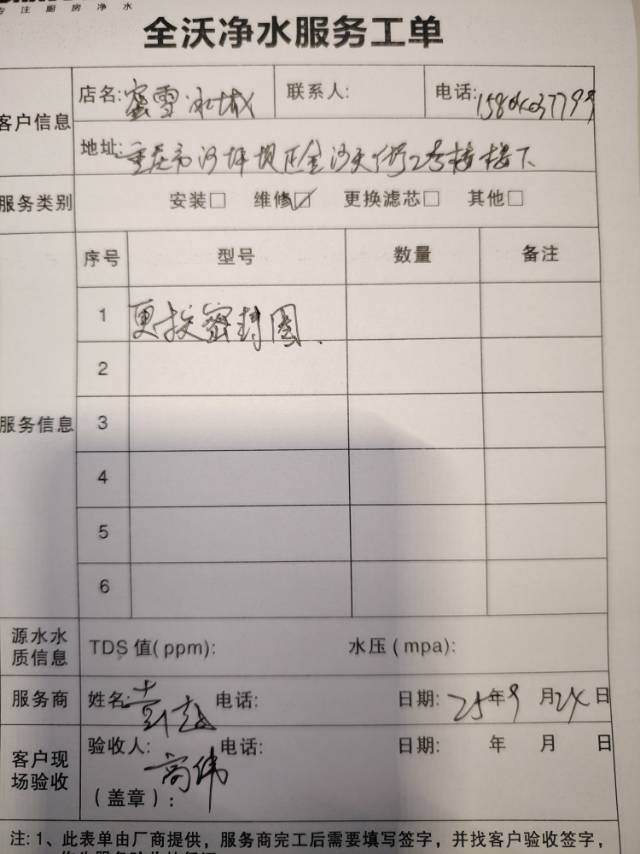 专注厨房净水
全沃净水服务工单
客户信息
店名: 蜜雪冰城 联系人: 电话:
地址: 重庆市沙坪坝区金沙天街2号楼楼下
服务类别 安装□ 维修☑ 更换滤芯□ 其他□
服务信息
序号 型号 数量 备注
1 更换密封圈
2
3
4
5
6
源水水质信息 TDS 值(ppm): 水压(mpa):
服务商 姓名: 电话: 日期: 25年9月24日
客户现场验收
验收人: 高伟 电话: 日期: 年 月 日
(盖章):
注: 1、此表单由厂商提供，服务商完工后需要填写签字，并找客户验收签字，